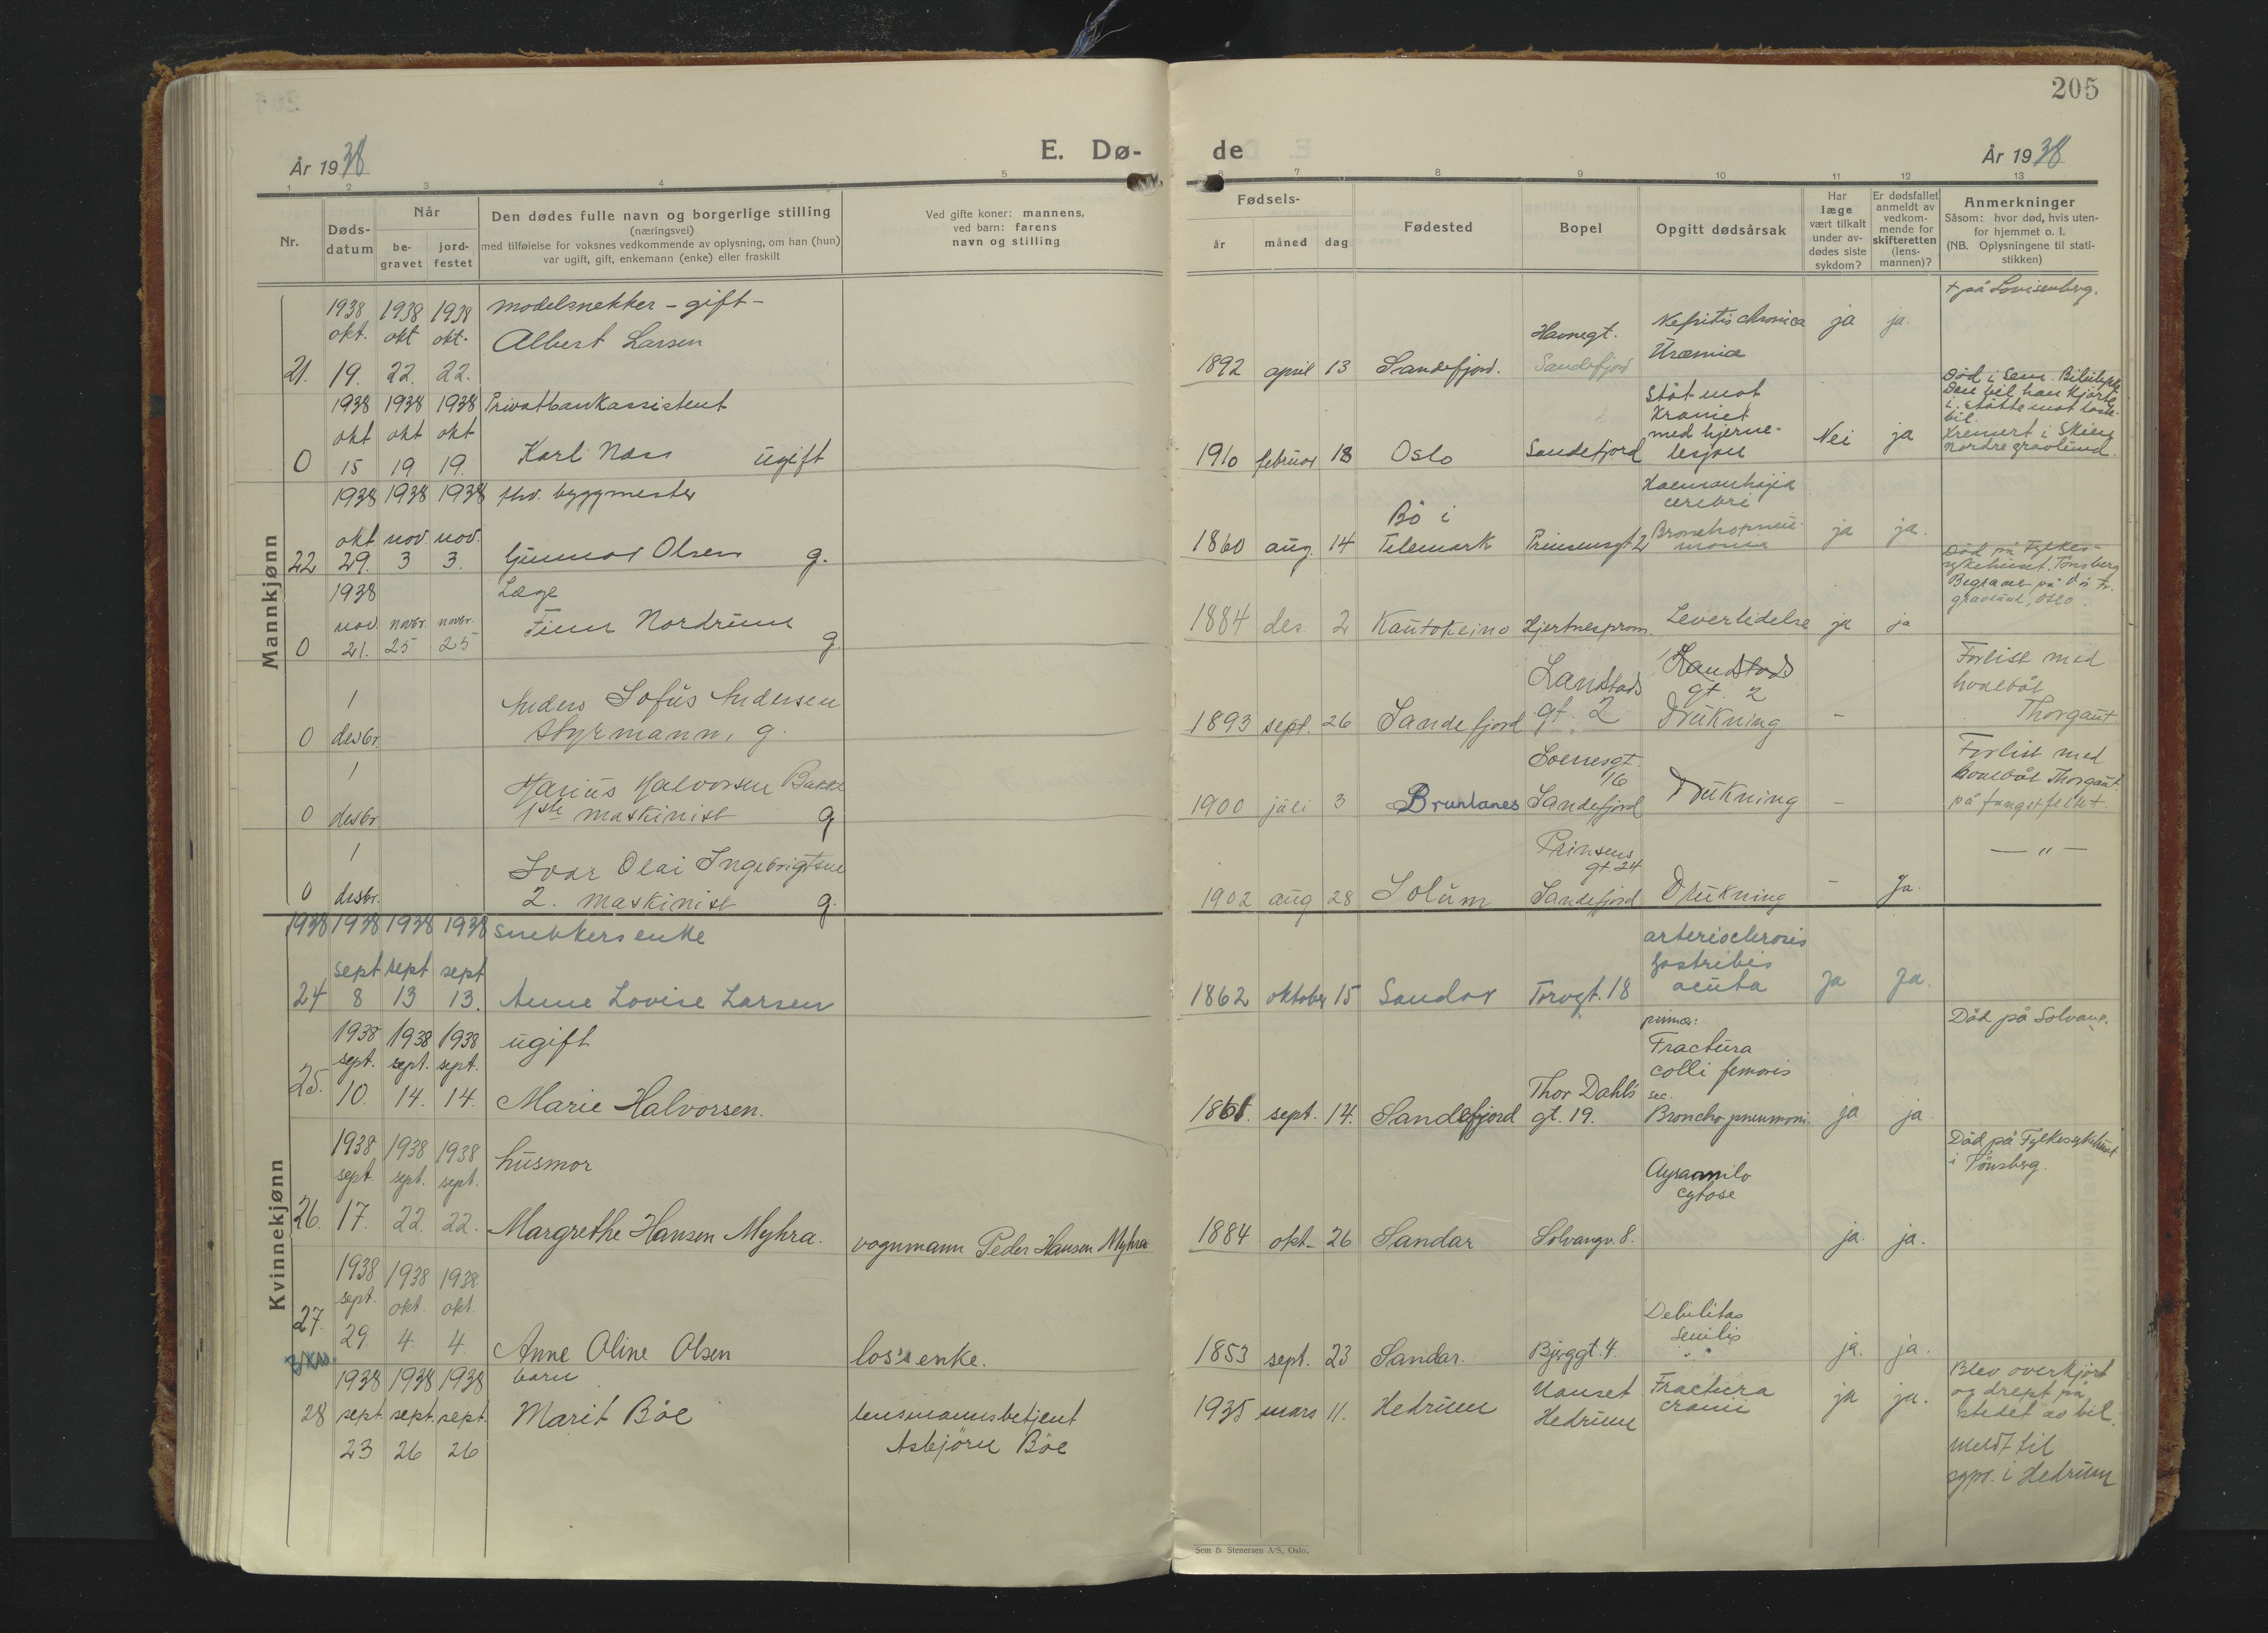 205
År 1938
E. Dø-
de
År 1938
1 2 3 4 5
6 7 8 9 10 11 12 13
Nr.
Døds-
datum
Når
be-
gravet
jord-
festet
Den dødes fulle navn og borgerlige stilling
(næringsvei)
med tilføielse for voksnes vedkommende av oplysning, om han (hun)
var ugift, gift, enkemann (enke) eller fraskilt
Ved gifte koner: mannens,
ved barn: farens
navn og stilling
Fødsels-
år måned dag
Fødested
Bopel
Opgitt dødsårsak
Har
læge
vært tilkalt
under av-
dødes siste
sykdom?
Er dødsfallet
anmeldt av
vedkom-
mende for
skifteretten
(lens-
mannen)?
Anmerkninger
Såsom: hvor død, hvis uten-
for hjemmet o. l.
(NB. Oplysningene til stati-
stikken)
Mannkjønn
1938 1938 1938 modelsnekker - gift -
okt. okt okt. Albert Larsen
21. 19. 22. 22.
1892 april 13 Sandefjord.
Havnegt.
Sandefjord
Nefritis chronica
Uræmia
ja ja.
+ på Lovisenberg.
1938 1938 1938 Privatbankassistent
okt okt okt
0 15 19 19. Karl Næss ugift
1910 februar 18 Oslo Sandefjord
Støt mot
Kraniet
med hjerne-
lesjon
Nei ja
Død i Sem. Bilulykke
Den bil han kjørte
i, støtte mot laste-
bil.
Kremert i Skien
Nordre gravlund.
1938 1938 1938 fhv. byggmester
okt. nov. nov.
22 29. 3 3. Gunnar Olsen g.
1860 aug. 14
Bö i
Telemark
Prinsensgt 2
Haemorrhagia
cerebri
Bronchopneu-
monia
ja ja.
1938 Læge
nov novbr. novbr. Finn Nordrum
0 21. 25 25 g.
1884 des. 2 Kautokeino Hjertnesprom. Leverlidelse ja ja
Död på Fylkes-
sykehuset, Tønsberg
gravlund, Oslo.
1 Anders Sofus Andersen
0 desbr. Styrmann, g.
1893 sept. 26 Sandefjord
Landstads
gt. 2
Landstads
gt. 2
Drukning -
Forlist med
hvalbåt
Thorgaut
1 Marius Halvorsen Bakke
0 desbr. 1ste maskinist g
1900 juli 3 Brunlanes
16
Sandefjord
Drukning -
Forlist med
hvalbåt Thorgaut
på fangstfeltet.
1 Ivar Olai Ingebrigtsen
0 desbr. 2. maskinist g.
1902 aug 28 Solum
Prinsens
gt 24
Sandefjord
Drukning - Ja.
— " —
Kvinnekjønn
1938 1938 1938 1938 snekkers enke
sept sept sept
24 8 13 13. Anne Lovise Larsen
1862 oktober 15 Sandar Torvgt. 18
acuta
Ja Ja.
1938 1938 1938 ugift
sept. sept. sept.
25. 10. 14. 14. Marie Halvorsen.
1861. sept. 14. Sandefjord
Thor Dahl's
gt. 19.
primær:
Fractura
colli femoris
sec.
Broncho pneumoni.
ja ja.
Död på Solvang.
1938 1938 1938 husmor
sept. sept. sept.
26. 17. 22. 22. Margrethe Hansen Myhra.
vognmann Peder Hansen Myhra
1884 okt- 26 Sandar Solvangv. 8.
cytose
ja. ja.
Död på Fylkessykehuset
i Tönsberg.
1938 1938 1938.
sept. okt. okt.
27. 29. 4. 4. Anne Oline Olsen
los's enke.
1853 sept. 23 Sandar. Bjerggt. 4.
Debilitas
senilis
ja. ja.
1938 1938 1938 barn
28 sept. sept. sept. Marit Böe
23 26 26
lensmannsbetjent
Asbjörn Böe
1935 mars 11. Hedrum
Nanset
Hedrum
Fractura
cranii
ja ja.
Blev overkjört
og drept på
stedet av bil.
meldt til
sgpr. i Hedrum
Sem & Stenersen A/S, Oslo.